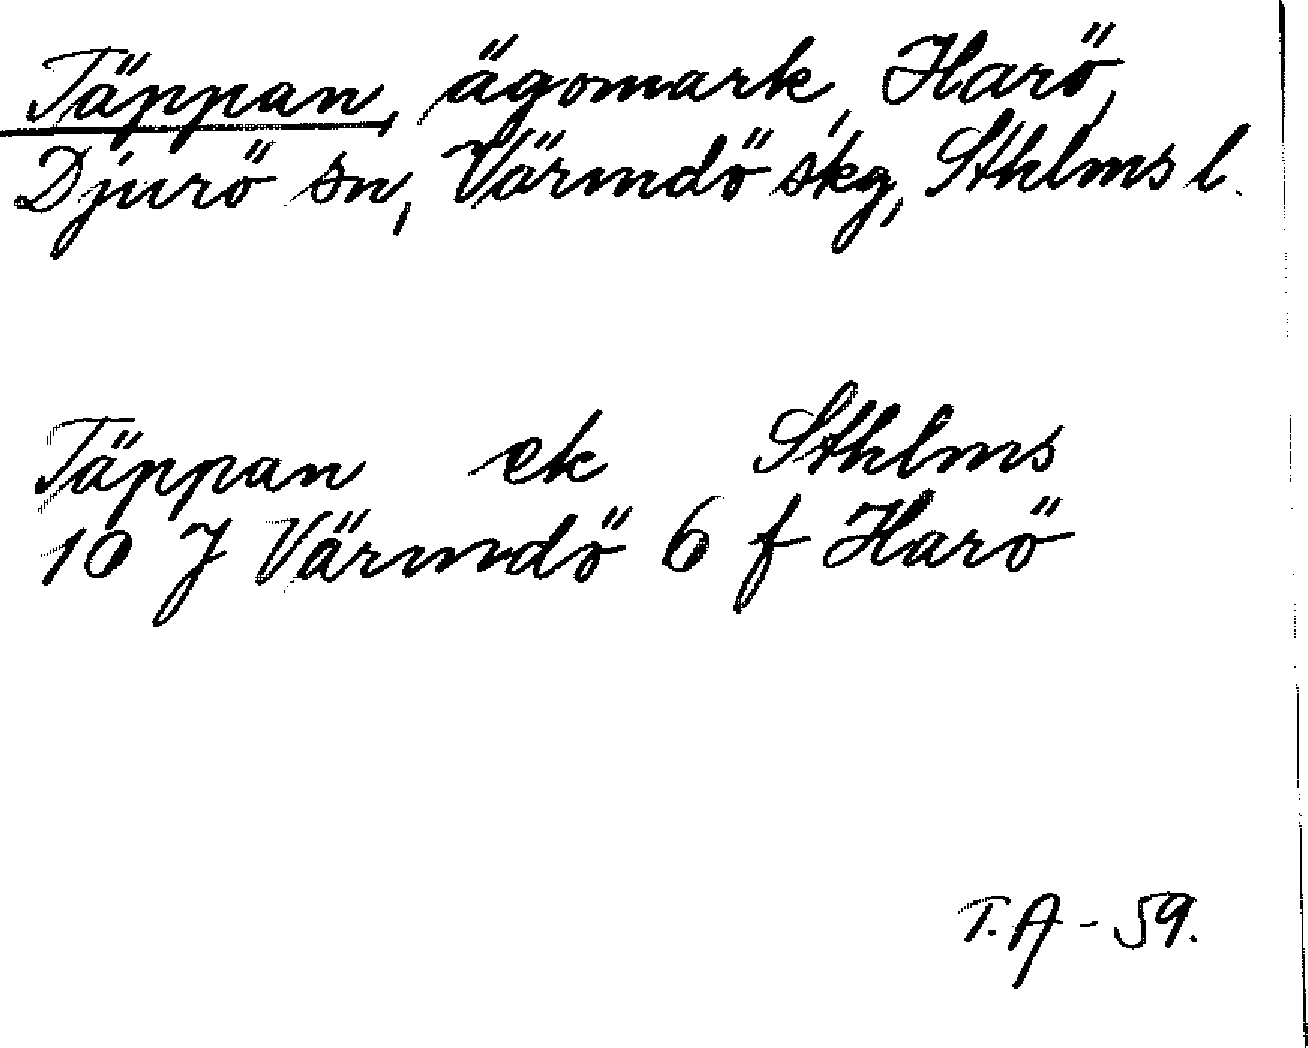 Täppan, ägomark, Harö,
Djurö sn, Värmdö skg, Sthlms l.
Täppan ek Sthlms
10 J Värmdö 6 f Harö
T.A - 59.